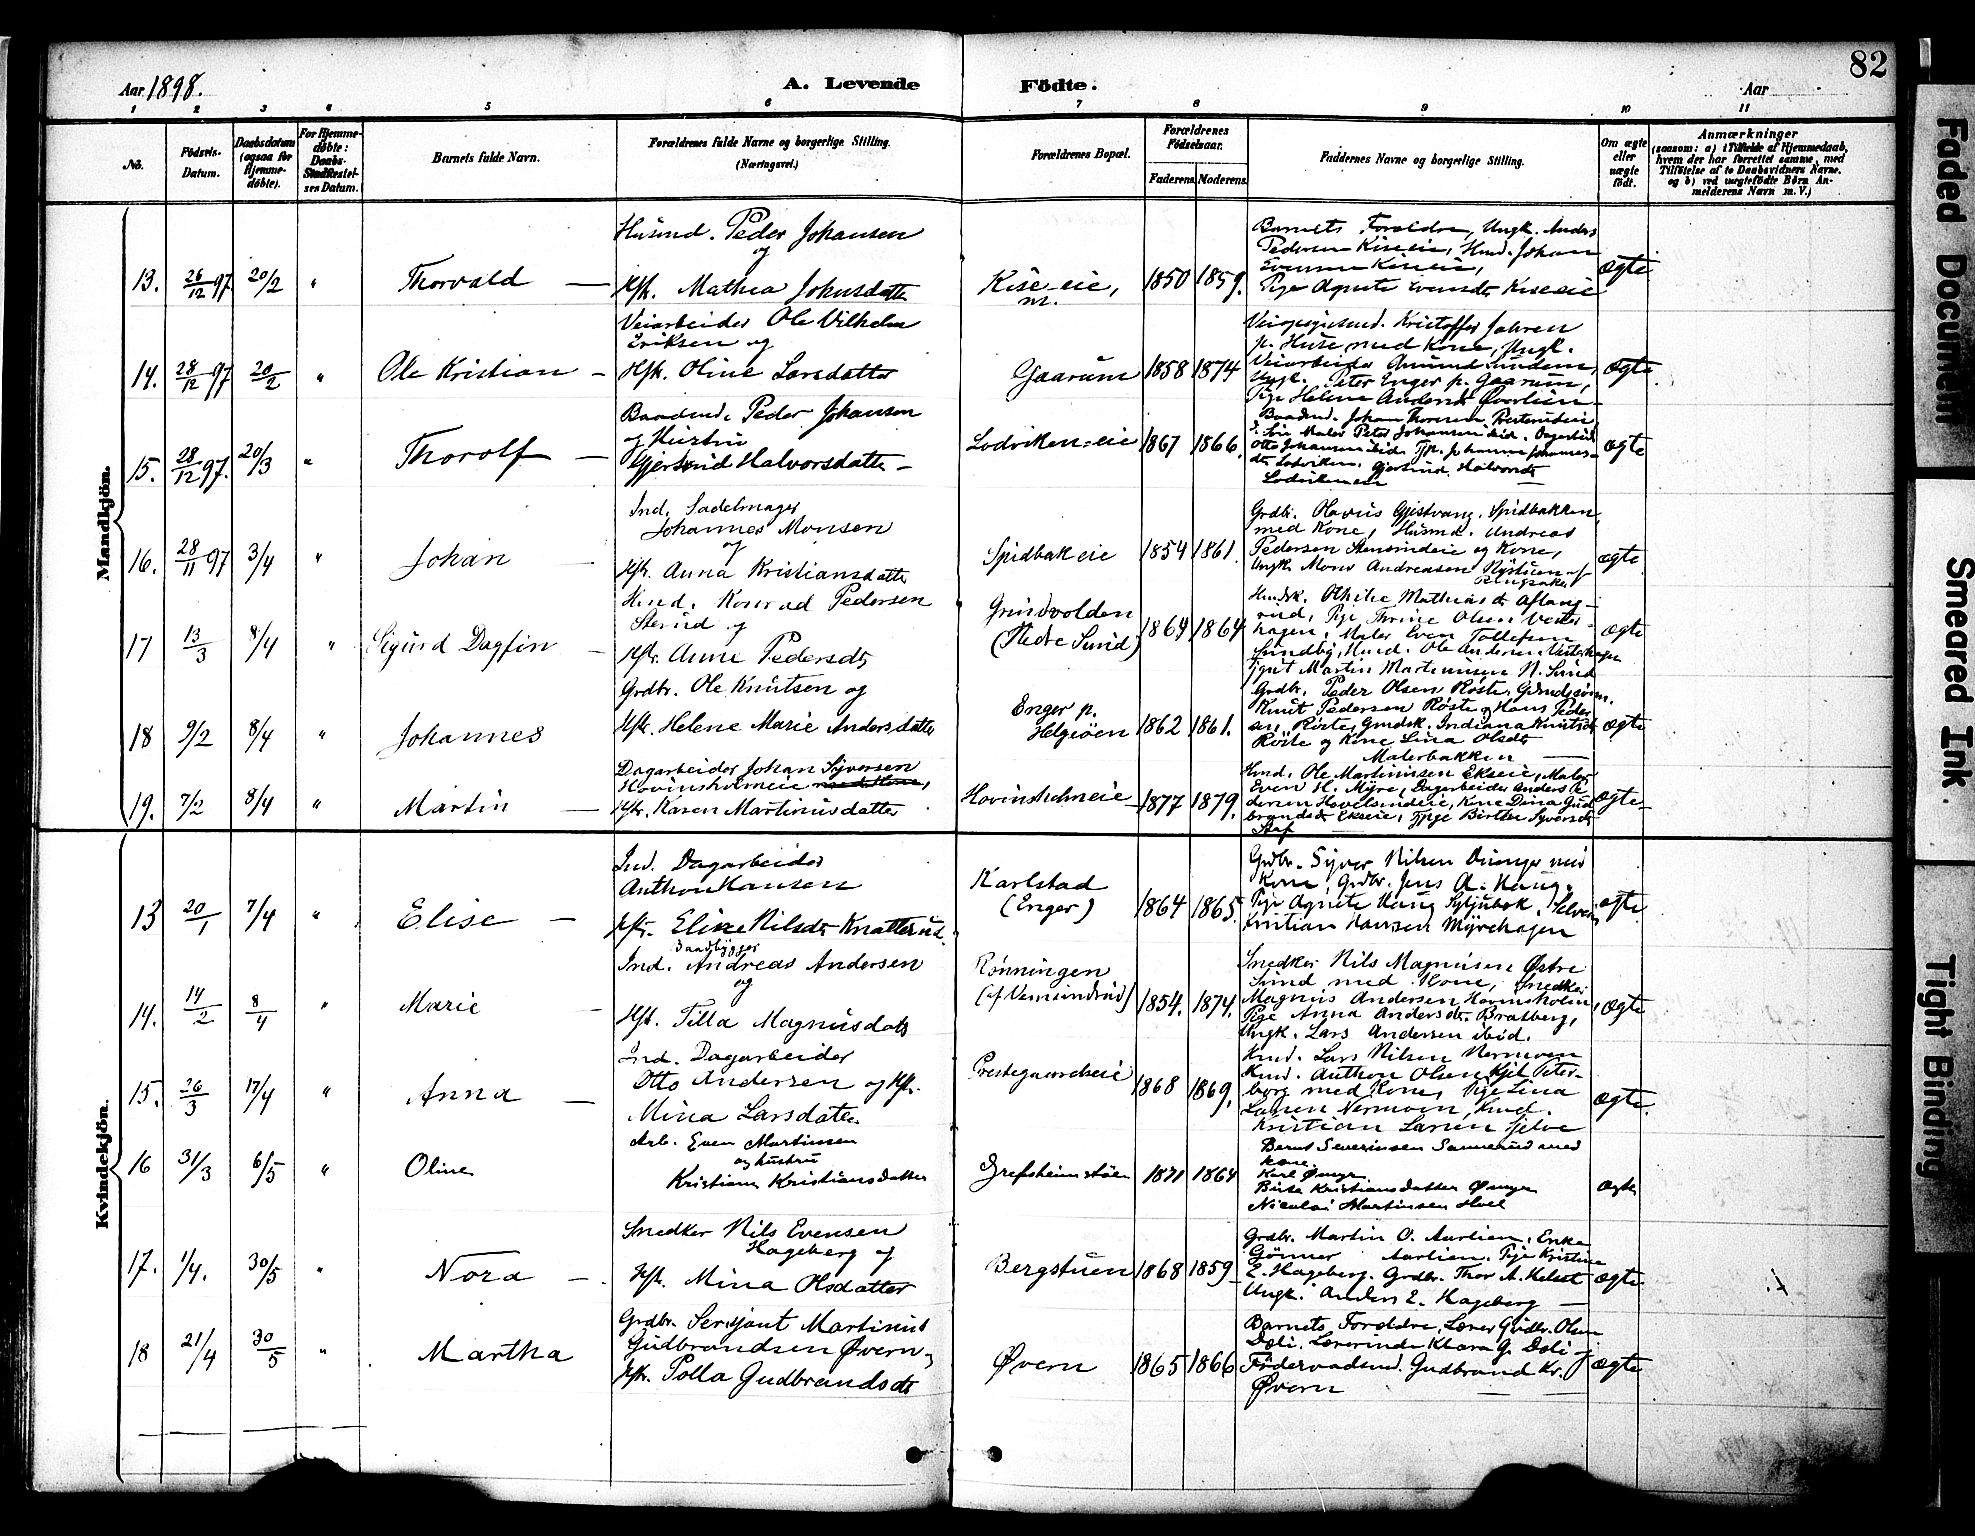 82
Aar 1898.
A. Levende Födte.
Aar
1 2 3 4 5 6 7 8 9 10 11
No.
Födsels-Datum.
Daabsdatum (ogsaa for Hjemme-döbte).
For Hjemme-döbte: Daabs-Stadfæstel-ses Datum.
Barnets fulde Navn.
Forældrenes fulde Navne og borgerlige Stilling.
(Næringsvei.)
Forældrenes Bopæl.
Forældrenes Födselsaar.
Faderens Moderens
Faddernes Navne og borgerlige Stilling.
Om ægte eller uægte födt.
Anmærkninger
(saasom: a) i Tilfælde af Hjemmedaab,
hvem der har forrettet samme, med
Tilföielse af to Daabsvidners Navne.
og b) ved uægtefödte Börn An-
melderens Navn m. V.)
Mandkjön.
13. 26/12 97 20/2 " Thorvald —
Husmd. Peder Johansen
og
Hst. Mathea Johnsdatter
Kise-eie,
1850 1859.
Barnets Foreldre, Ungk. Anders
Pedersen Kiseeie, Husmd. Johan
Evensen Kiseeie,
Pige Agnete Evensdt. Kiseeie
ægte
14. 28/12 97 20/2 " Ole Kristian —
Veiarbeider Ole Vilhelm
Eriksen og
Hst. Oline Larsdatter
Gaarum
1858 1874
Kristoffer
p. Huse med Kone, Ungk.
Veiarbeider
Ungk. Peter Enger p. Gaarum,
Pige Helene Andersdt.
ægte
15. 28/12 97. 20/3 " Thorolf —
Baadsmd. Peder Johansen
og Hustru
Gjertrud Halvorsdatter —
Lodviken-eie
1867 1866.
Baadsmd. Johan
Maler Peter Johansen ibid.
Otto Johansen ibid.
Lodviken, Gjertrud Halvorsdt.
Lodviken
ægte
16. 28/11 97 3/4 " Johan —
Ind. Sadelmager
Johannes Monsen
og
Hst. Anna Kristiansdatter
Spidbakeie
1854 1861.
Grdbr. Olavus Gjestvang, Spidbakken,
med Kone, Husmd. Andreas
Pedersen Stensrudeie og Kone,
Ungk. Mons Andreasen
ægte
17 13/3 8/4 " Sigurd Dagfin —
Husmd. Konrad Pedersen
Sterud og
Hst. Anne Pedersdt
Grundvolden
(Nedre Sund)
1864 1864
Mathiasdt.
Pige Thrine Olsen Vester-
hagen, Maler Even Tollefsen
Sundby, Husmd. Ole Andersen Vesterhagen
Martin Martinusen N. Sund
ægte
18 9/2 8/4 " Johannes
Grdbr. Ole Knutsen og
Hst. Helene Marie Andersdatter
Enger p.
Helgiöen
1862 1861.
Grdbr. Peder Olsen Röste,
Knut Pedersen Röste og Hans Peder-
sen, Röste, Indiana Knutsdt
Röste og Kone Lina Olsdt
Malerbakken —
ægte
19. 7/2 8/4 " Martin —
Dagarbeider Johan Syversen
Hovinsholmeie med Kone,
Hst. Karen Martinusdatter
Hovinsholmeie
1877 1879.
Husmd. Ole Martinussen Ekseie, Maler
Even H. Myre, Dagarbeider Anders
Kone Dina Gud-
brandsdt Ekseie, Birthe Syversdt
ægte
Kvindekjön.
13 20/1 7/4 " Elise —
Ind. Dagarbeider
Anthon Hansen
Hst. Eline Nilsdt. Knatterud.
Karlstad
(Enger)
1864 1865.
Grdbr. Syver Nilsen med
Kone, Grdbr. Jens A. Haug,
Pige Agnete Haug
Kristian Hansen Myrehagen
ægte
14. 14/2 8/4 " Marie —
Baadbygger
Ind. Andreas Andersen
og
Hst. Tilla Magnusdatr
Rønningen
1854. 1874.
Snedker Nils Magnussen Østre
Sund med Kone, Snedker
Magnus Andersen Hovinsholm,
Pige Anna Andersdt. Bratberg,
Ungk. Lars Andersen ibid.
ægte
15. 26/3 17/4 " Anna —
Ind. Dagarbeider
Otto Andersen og Hst.
Mina Larsdatter
Prestegaardseie
1868 1869.
Husmd. Lars Nilsen Nermoen
Husmd. Anthon Olsen Peter-
borg med Kone, Pige Lina
Larsen Nermoen, Husmd.
Kristian Larsen
ægte.
16 31/3 6/5 " Oline
Arb. Even Martinsen
og hustru
Kristiane Kristiansdatter
Grefsheimstöen
1871 1864
Bernt Severinsen Sannerud med
kone.
Karl
Birte Kristiansdatter
Nicolai Martinsen Hoel
ægte
17. 1/4. 30/5 " Nora —
Snedker Nils Evensen
Hageberg og
Hst. Mina Olsdatter
Bergstuen
1868 1859
Grdbr. Martin O. Aurlien, Enke
Gönner Aurlien, Pige Kristine
E. Hageberg, Grdbr. Thor A. Helset
Ungk. Anders E. Hageberg —
ægte
18 21/4 30/5 " Martha
Grdbr. Sersjant Martinus
Gudbrandsen Øvern,
Hst. Polla Gudbrandsdt
Øvern
1865 1866
Barnets Foreldre, Lærer Gudbr. Olsen
Dæli, Lærerinde Klara G. Dæli og
Födevaadsmd. Gudbrand Kr.
Øvern
ægte
Faded Document
Smeared Ink.
Tight Binding